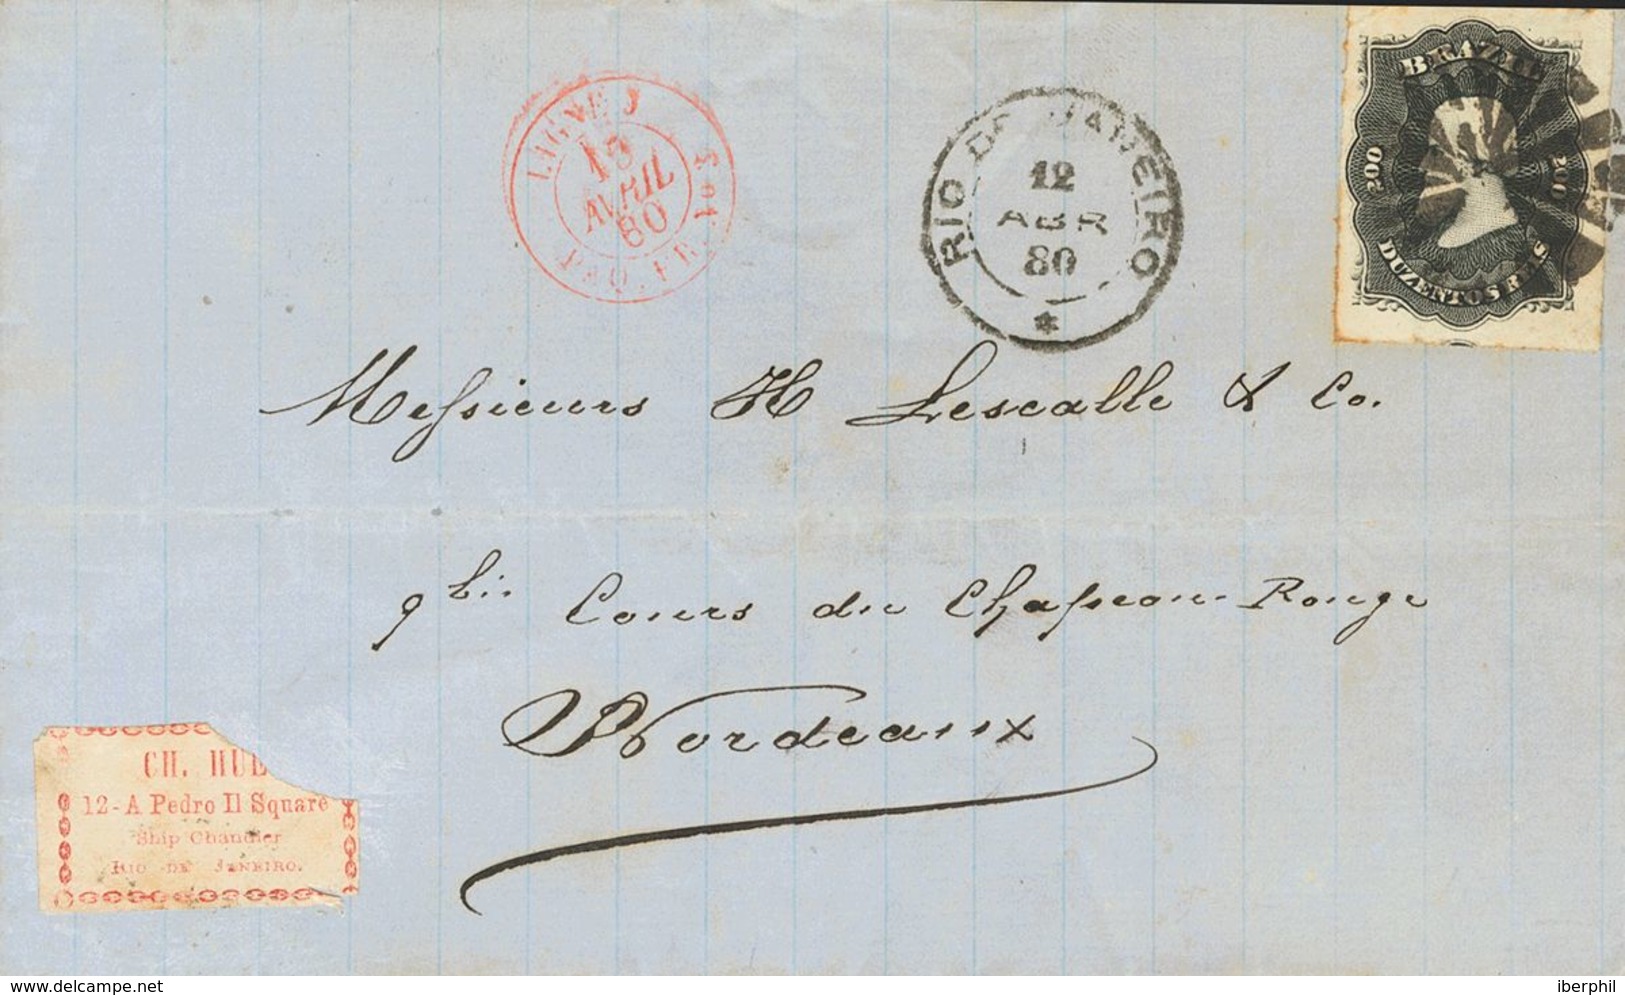 BRAZIL
200
200
DUZENTOS REIS
LIGNE J
AVRIL
80
PAQ. FR. No 1
RIO DE JANEIRO
12
ABR
80
*
Messieurs H Lescalle & Co.
9 bis Cours du Chapeau-Rouge
Bordeaux
CH.
12-A Pedro II Square
Ship Chandler
RIO DE JANEIRO.
www.delcampe.net
iberphil